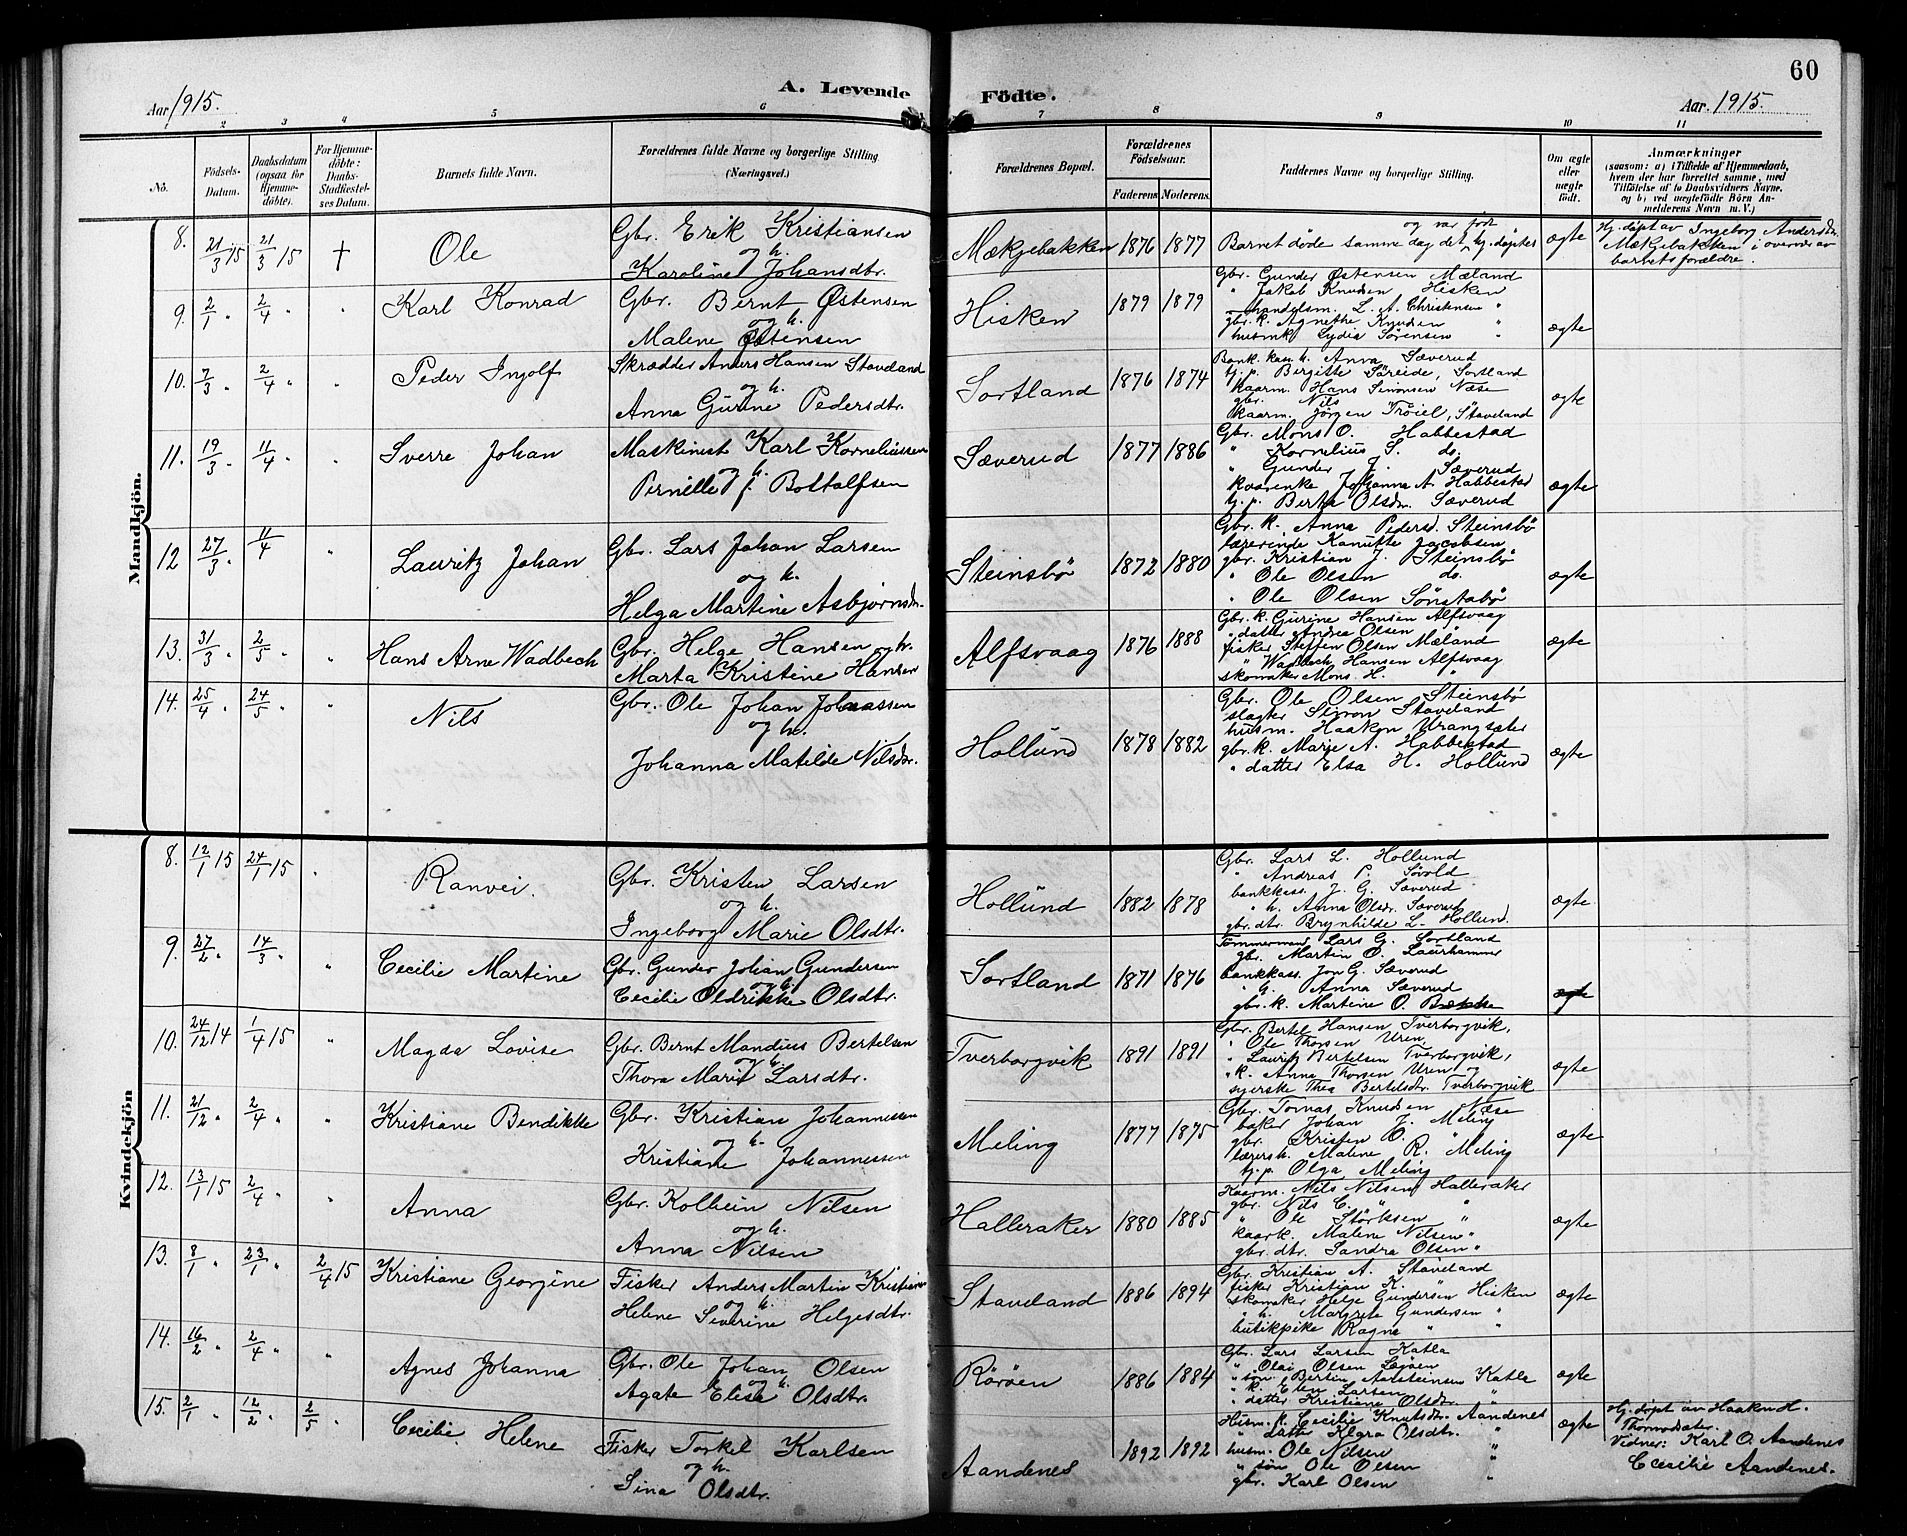 60
Aar 1915.
A. Levende Födte.
Aar 1915.
1 2 3 4 5 6 7 8 9 10 11
No.
Födsels-Datum.
Daabsdatum (ogsaa for Hjemme-döbte).
For Hjemme-döbte: Daabs-Stadfæstel-ses Datum.
Barnets fulde Navn.
Forældrenes fulde Navne og borgerlige Stilling. (Næringsvei.)
Forældrenes Bopæl.
Forældrenes Födselsaar.
Faderens Moderens.
Faddernes Navne og borgerlige Stilling.
Om ægte eller uægte födt.
Anmærkninger
(saasom: a) i Tilfælde af Hjemmedaab,
hvem der har forrettet samme, med
Tilföielse af to Daabsvidners Navne.
og b) ved uægtefödte Börn An-
melderens Navn m. V.)
Mandkjön.
8. 21/3 15 21/3 15 † Ole
Gbr. Erik Kristiansen
og h.
Karoline Johansdtr.
Mækjebakken 1876 1877
og var født
Barnet døde samme dag det hj.døptes
ægte
Hj. døpt av Ingeborg Andersdtr.
Mækjebakken i overvær av
barnets forældre.
9. 2/1 " 2/4 " " Karl Konrad
Gbr. Bernt Østensen
og h.
Malene Østensen
Hisken 1879 1879
Gbr. Gunder Østensen Mæland
" Jakob Knudsen Hisken
handelsm. L. A. Christensen "
gbr. k. Agnethe Knudsen "
husmk Lydia Sørensen "
ægte
10. 7/3 " 2/4 " " Peder Ingolf
Skrædder Anders Hansen Staveland
og h.
Anna Gurine Pedersdtr.
Sortland 1876 1874
Bank.kas. h. Anna Sæverud
tj. p. Bergitte Søreide, Sortland
kaarm. Hans Simonsen Næse
gbr. Nils
kaarm. Jörgen Troiel, Staveland
ægte
11. 19/3 " 11/4 " " Sverre Johan
Maskinist Karl Korneliussen
og h.
Pernille J. Bottolfsen
Sæverud 1877 1886
Gbr. Mons O. Habbestad
" Kornelius S. do.
" Gunder J. Sæverud
kaarenke Johanna A. Habbestad
tj. p. Berta Olsdtr. Sæverud
ægte
12 27/3 " 11/4 " Lauritz Johan
Gbr. Lars Johan Larsen
og h.
Helga Martine Asbjørnsdtr.
Steinsbø 1872 1880
Gbr. k. Anna Pedersd. Steinsbø
lærerinde Kanutte Jacobsen
gbr. Kristian J. Steinsbø
" Ole Olsen do.
" Ole Olsen Sønstabø
ægte
13. 31/3 " 2/5 " " Hans Arne Wadbech
Gbr. Helge Hansen og h.
Marta Kristine Hansen
Alfsvaag 1876 1888
Gbr. k. Gurine Hansen Alfsvaag
" datter Andrea Olsen
fisker Steffen Olsen Mæland
" Wadbech Hansen Alfsvaag
skomaker Mons H. "
ægte
14. 25/4 " 24/5 " " Nils
Gbr. Ole Johan Johnassen
og h.
Johanna Matilde Nilsdtr.
Hollund 1878 1882
Gbr. Ole Olsen Steinsbø
slagter Simon Staveland
husm. Haakon Urangsæter
gbr. k. Marie A. Habbestad
" datter Elsa H. Hollund
ægte
Kvindekjön
8. 12/1 15 24/1 15 " Ranvei.
Gbr. Kristen Larsen
og h.
Ingeborg Marie Olsdtr.
Hollund 1882 1878
Gbr. Lars L. Hollund
" Andreas P. Søvold
bankkass. J. G. Sæverud
" h. Anna Olsdr. Sæverud
gbr. dtr. Brynhilde L. Hollund.
ægte.
9. 27/2 " 14/3 " " Cecilie Martine
Gbr. Gunder Johan Gundersen
og h.
Cecilie Oldrikke Olsdtr.
Sortland 1871 1876
Tømmermand Lars G. Sortland
gbr. Martin O. Laurhammer
bankkass. Jon G. Sæverud
" h. Anna Sæverud
gbr. k. Martine O. Bække
ægte
10. 24/12 14 1/4 15 " Magda Lovise
Gbr. Bernt Mandius Bertelsen
og h.
Thora Marie Larsdtr.
Tverborgvik 1891 1891
Gbr. Bertel Hansen Tverborgvik,
" Ole Thorsen Uren,
" Lauritz Bertelsen Tverborgvik,
" k. Anna Thorsen Uren og
syerske Thea Bertelsdtr. Tverborgvik
ægte
11. 21/12 " 2/4 " " Kristiane Bendikte
Gbr. Kristian Johannessen
og h.
Kristiane Johannessen
Meling 1877 1875
Gbr. Tomas Knudsen Næse
baker Johan J. Meling
gbr. Kristen O. "
lærersh. Malene R. Meling
tj. p. Olga Meling
ægte
12. 13/1 15 2/4 " " Anna
Gbr. Kolbein Nilsen
og h.
Anna Nilsen
Halleraker 1880 1885
Kaarm. Nils Nilsen Halleraker
gbr. Nils C. "
" Ole Størksen "
kaark. Malene Nilsen "
gbr. dtr. Sandra Olsen "
ægte
13. 8/1 " 23/1 " 2/4 15 Kristiane Georgine
Fisker Anders Martin Kristians
og h.
Helene Severine Helgesdtr.
Staveland 1886 1894
Gbr. Kristian A. Staveland
fisker Kristian K. "
skomaker Helge Gundersen Hisken
" h. Margrete Gundersen "
butikpike Ragna "
ægte
14. 16/2 " 2/4 " " Agnes Johanna
Gbr. Ole Johan Olsen
og h.
Agate Elise Olsdtr.
Røröen 1886 1884
Gbr. Lars Larsen Katla
" Olai Olsen
" søn Bertin Katla
" k. Elen Larsen
" datter Kristiane Olsdtr. "
ægte
15. 2/1 " 12/2 " 2/5 " Cecilie Helene
Fisker Torkel Karlsen
og h.
Sina Olsdtr.
Aandenes 1892 1892
Husm. k. Cecilie Knutsdtr. Aandenes
" datter Klara Olsdtr. "
husm. Ole Nilsen "
" søn Ole Olsen "
gbr. Karl Olsen "
ægte
Hj. døpt av Haakon H.
Thormodsæter.
Vidner: Karl O. Aandenes
Cecilie Aandenes.